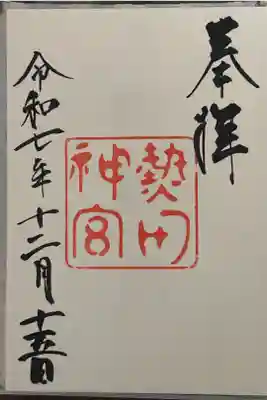 奉拝
熱田
神宮
令和七年十二月十五日